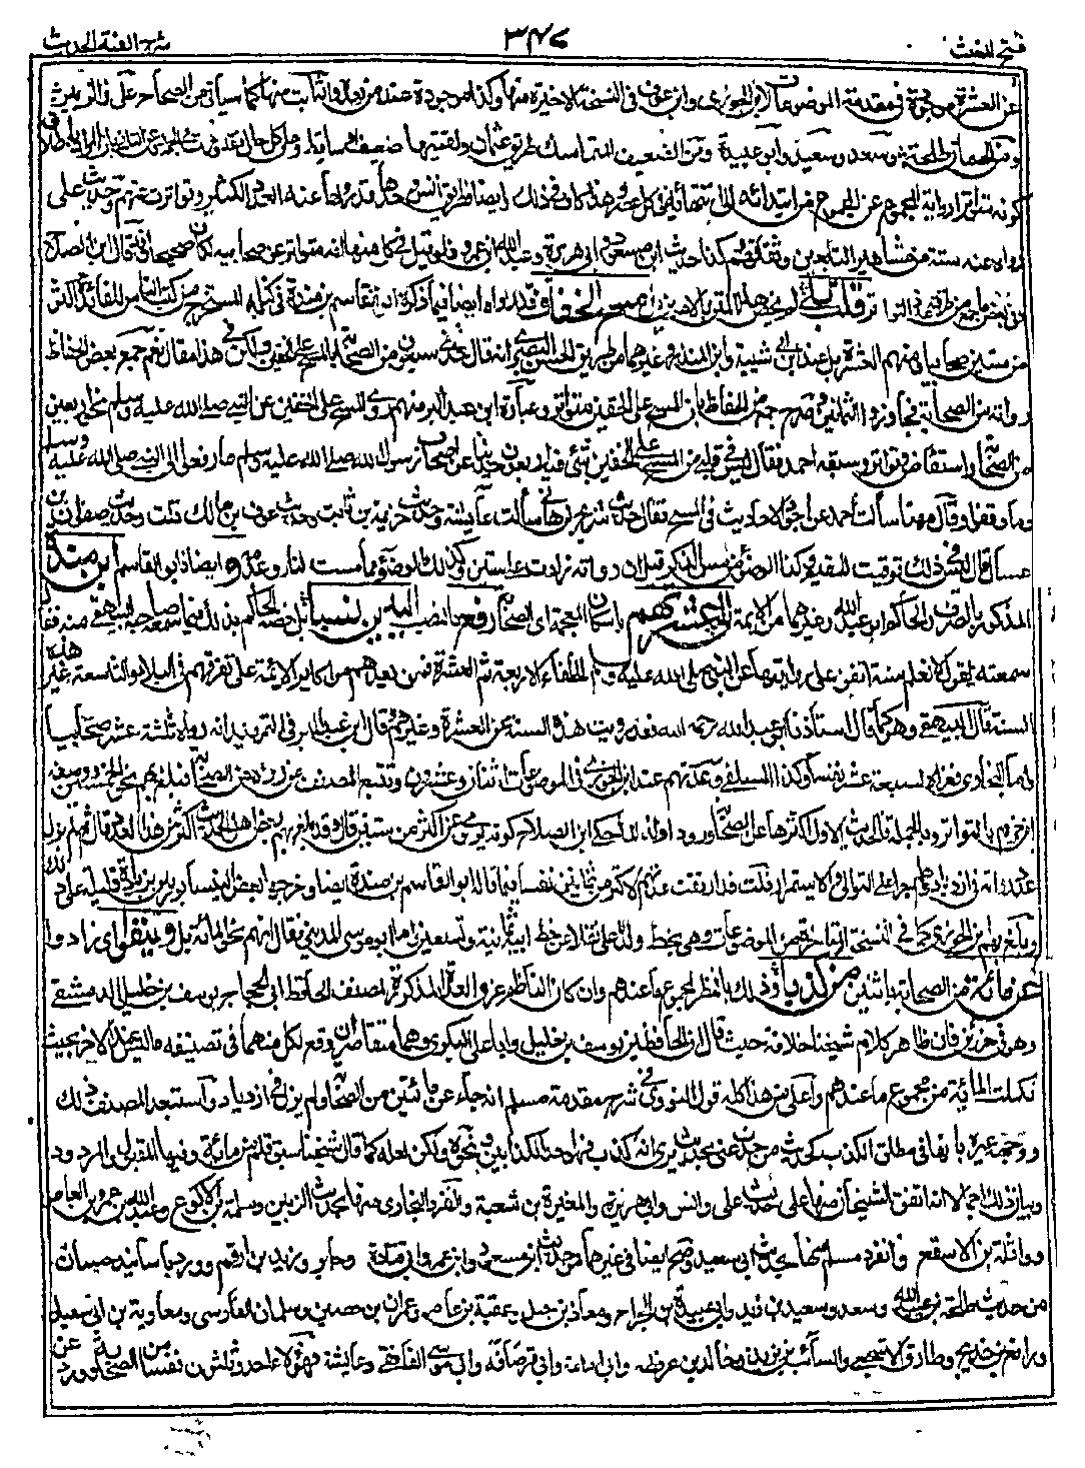 فتح المغيث ٣٤٧ شرح الفية الحديث
عن العشرة موجودة في مقدمة الموضوعات لابن الجوزي وابن عوف في النسخة الاخيرة منها وكذا موجودة عنده من بعدها والثابت منها كما سيأتي من الصحاح علي والزبير
ومن الحسان طلحة وسعد وسعيد وابو عبيدة ومن الضعيف المتماسك طريق عثمان وبقيتها ضعيف وساقط وعلى كل حال فقد
كونه متواترا رواية المجموع عن المجموع من ابتدائه الى انتهائه في كل عصر وهذا كاف في ذلك وايضا فطريق انس وحدها قد رواها عنه العدد الكثير وتواترت عنهم وحديث علي
رواه عنه ستة من مشاهير التابعين وثقاتهم وكذا حديث ابن مسعود وابي هريرة وعبد الله بن عمرو فلو قيل في كل منها انه متواتر عن صحابيه لكان صحيحا
قلت بلى مسح الخفاف فقد رواه ايضا فيما ذكره ابو القاسم بن منده في كتابه المستخرج من كتب الناس للفائدة اكثر
من ستين صحابيا منهم العشرة بل عند ابن ابي شيبة وابن المنذر وغيرهما من طريق الحسن البصري انه قال حدثني سبعون من الصحابة بالمسح على الخفين ولكن في هذا مقال نعم جمع بعض الحفاظ
رواته من الصحابة فجاوزوا الثمانين وصرح جمع من الحفاظ بان المسح على الخفين متواتر وعبارة ابن عبد البر منهم روى المسح على الخفين عن النبي صلى الله عليه وسلم نحو اربعين
من الصحابة واستفاض وتواتر وسبقه احمد فقال ليس في قلبي من المسح على الخفين شيء فيه اربعون حديثا عن اصحاب رسول الله صلى الله عليه وسلم ما رفعوا الى النبي صلى الله عليه وسلم
وما وقفوا وقال مهنا سألت احمد عن اجود الاحاديث في المسح فقال حديث شريح بن هانئ سألت عائشة وحديث خزيمة بن ثابت وحديث عوف بن مالك قلت وحديث صفوان بن
عسال قال ليس في ذلك توقيت للمقيم وكذا الوضوء من مس الذكر قيل ان رواته زادت على ستين وكذلك الوضوء مما مست النار وعدمه وايضا ذا ابو القاسم ابن منده
المذكور بالصرف والحاكم ابو عبد الله وغيرهما من الائمة الى عشرتهم باسكان المعجمة اي الصحابة رفع بالنصب اليدين نسبا بل خصه الحاكم بذلك فيما سمعه صاحبه البيهقي منه فقال
سمعته يقول لا نعلم سنة اتفق على روايتها عن النبي صلى الله عليه وسلم الخلفاء الاربعة ثم العشرة فمن بعدهم من اكابر الائمة على تفرقهم في البلاد الشاسعة غير هذه
السنة قال البيهقي وهو كما قال استاذنا ابو عبد الله رحمه الله فقد رويت هذه السنة عن العشرة وغيرهم وقال ابن عبد البر في التمهيد انه رواه ثلثة عشر صحابيا
واما البخاري فعزاه لسبعة عشر نفسا وكذا السلفي وعدتهم عند ابن الجوزي في الموضوعات اثنان وعشرون وتتبع المصنف من رواه من الصحابة فبلغ بهم نحو الخمسين ووصفه
ابن حزم بالتواتر وبالجملة فالحديث الاول اكثرها عن الصحابة ورودا ولذا حكى ابن الصلاح كونه يروى عن اكثر من ستين قال وقد بلغ بهم بعض اهل الحديث اكثر من هذا العدد قال ثم لم يزل
عدد رواته في ازدياد وهلم جرا على التوالي والاستمرار قلت قد ارتقت عدتهم لاكثر من ثمانين نفسا فيما قاله ابو القاسم بن منده ايضا وخرجه بعض النيسابوريين بزيادة قليلة على ذلك
وبلغ بهم ابن الجوزي كما في النسخة المتأخرة من الموضوعات وهي بخط ولده علي نقلا من خط ابيه ثمانية وتسعين اما ابو موسى المديني فقال انهم نحو المائة بل ونيفوا اي زادوا
عن مائة من الصحابة باثنين من كذب وذلك بالنظر لمجموع ما عندهم وان كان الناظم عزى العدة المذكورة لمصنف الحافظ ابي الحجاج يوسف بن خليل الدمشقي
وهو في جزئين فان ظاهر كلام شيخنا خلافه حيث قال ان الحافظين يوسف بن خليل وابا علي البكري وهما متعاصران وقع لكل منهما في تصنيفه ما ليس عند الآخر بحيث
تكملت المائة من مجموع ما عندهم واعلى من هذا كله قول النووي في شرح مقدمة مسلم انه جاء عن مائتين من الصحابة ولم يزل في ازدياد واستبعد المصنف ذلك
ووجهه غيره بانها في مطلق الكذب كحديث من حدث عني بحديث يرى انه كذب فهو احد الكاذبين ونحوه ولكن لعله كما قال شيخنا سبق قلم من مائة وفيها المقبول والمردود
وبيان ذلك اجمالا انه اتفق الشيخان منها على حديث علي وانس وابي هريرة والمغيرة بن شعبة وانفرد البخاري منها بحديث الزبير وسلمة بن الاكوع وعبد الله بن عمرو بن العاص
وواثلة بن الاسقع وانفرد مسلم منها بحديث ابي سعيد وصح ايضا في غيرها من حديث ابن مسعود وابن عمر وابي قتادة وجابر وزيد بن ارقم وورد باسانيد حسان
من حديث طلحة بن عبيد الله وسعد وسعيد بن زيد وابي عبيدة بن الجراح ومعاذ بن جبل وعقبة بن عامر وعمران بن حصين وسلمان الفارسي ومعاوية بن ابي سفيان
ورافع بن خديج وطارق الاشجعي والسائب بن يزيد وخالد بن عرفطة وابي امامة وابي قرصافة وابي موسى الغافقي وعائشة فهؤلاء احد وثلثون نفسا من الصحابة وورد عن